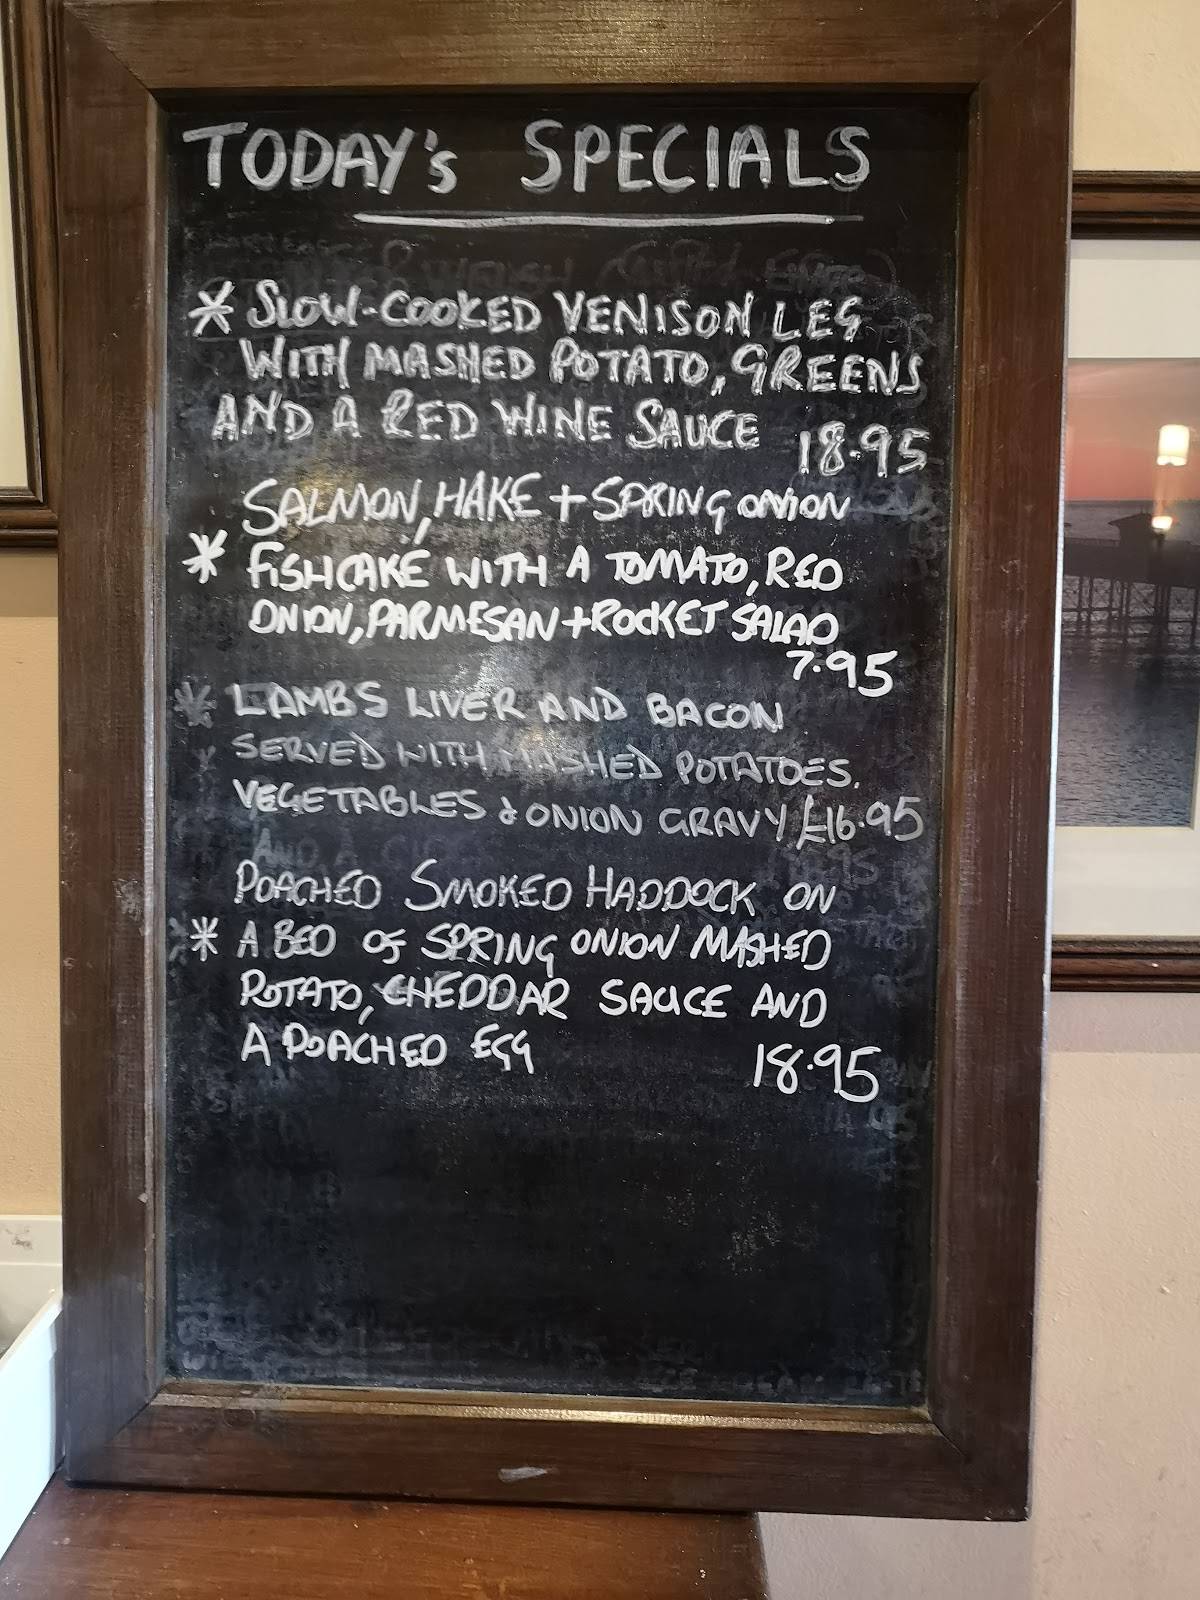 TODAY's SPECIALS
* SLOW-COOKED VENISON LEG
WITH MASHED POTATO, GREENS
AND A RED WINE SAUCE 18.95
SALMON, HAKE + SPRING ONION
* FISHCAKE WITH A TOMATO, RED
ONION, PARMESAN + ROCKET SALAD
7.95
* LAMBS LIVER AND BACON
SERVED WITH MASHED POTATOES.
VEGETABLES & ONION GRAVY £16.95
POACHED SMOKED HADDOCK ON
* A BED OF SPRING ONION MASHED
POTATO, CHEDDAR SAUCE AND
A POACHED EGG 18.95